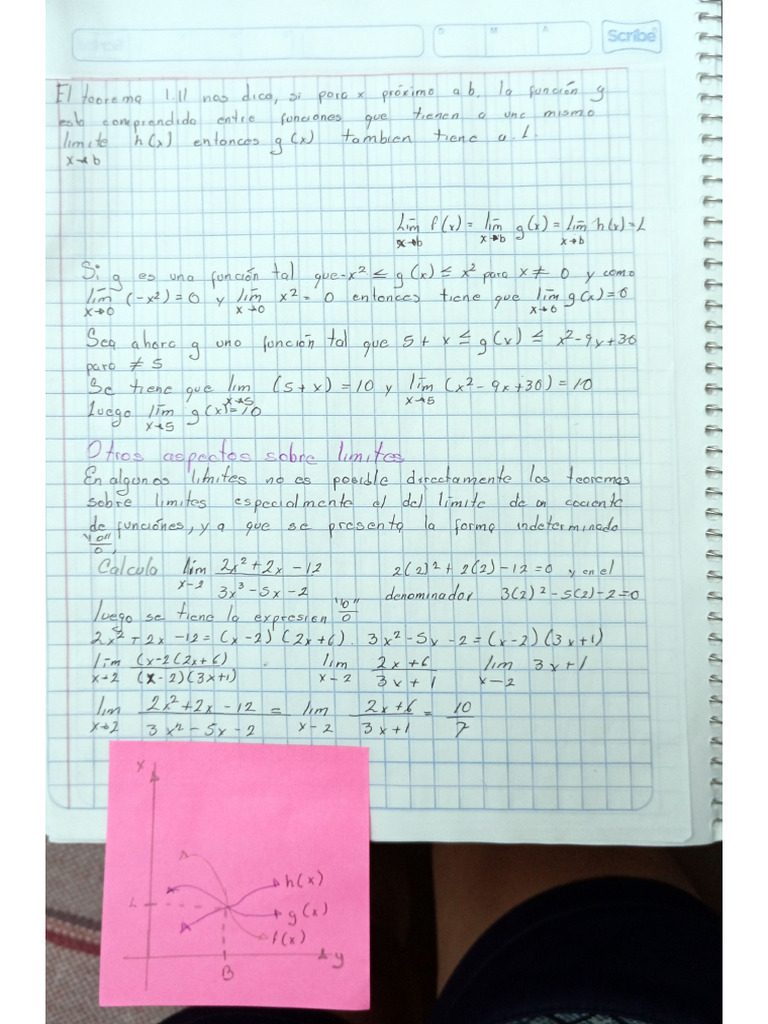 Scribe
D M A
El teorema 1.11 nos dice, si para x próximo a b. la función g
esta comprendida entre funciones que tienen a une mismo
limite h(x) entonces g(x) tambien tiene a L
x→b
Lim f(x) = lim g(x) = lim h(x) = L
x→b x→b x→b
Si g es una función tal que -x² ≤ g(x) ≤ x² para x ≠ 0 y como
lim (-x²) = 0 y lim x² = 0 entonces tiene que lim g(x) = 0
x→0 x→0 x→0
Sea ahora g una función tal que 5 + x ≤ g(x) ≤ x² - 9x + 30
para ≠ 5
Se tiene que lim (5 + x) = 10 y lim (x² - 9x + 30) = 10
x→5 x→5
Luego lim g(x) = 10
x→5
Otros aspectos sobre limites
En algunos límites no es posible directamente los teoremas
sobre limites especialmente el del límite de un cociente
de funciónes, y a que se presenta la forma indeterminado
"0"
0,
Calcula lim 2x² + 2x - 12 2(2)² + 2(2) - 12 = 0 y en el
x-2 3x³ - 5x - 2 denominador 3(2)² - 5(2) - 2 = 0
luego se tiene la expresion "0"/0
2x² + 2x - 12 = (x - 2) (2x + 6). 3x² - 5x - 2 = (x - 2) (3x + 1)
lim (x - 2(2x + 6) lim 2x + 6 lim 3x + 1
x→2 (x - 2)(3x + 1) x-2 3x + 1 x-2
lim 2x² + 2x - 12 = lim 2x + 6 = 10
x→2 3x² - 5x - 2 x-2 3x + 1 7
x
h(x)
L
g(x)
f(x)
y
B